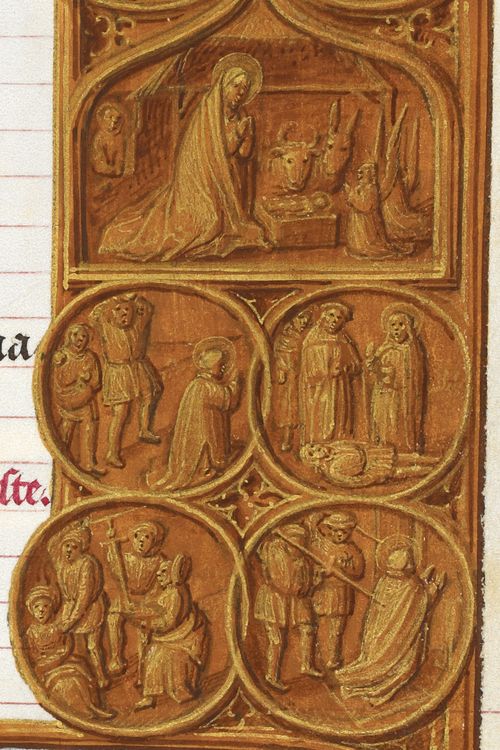 na
ste.